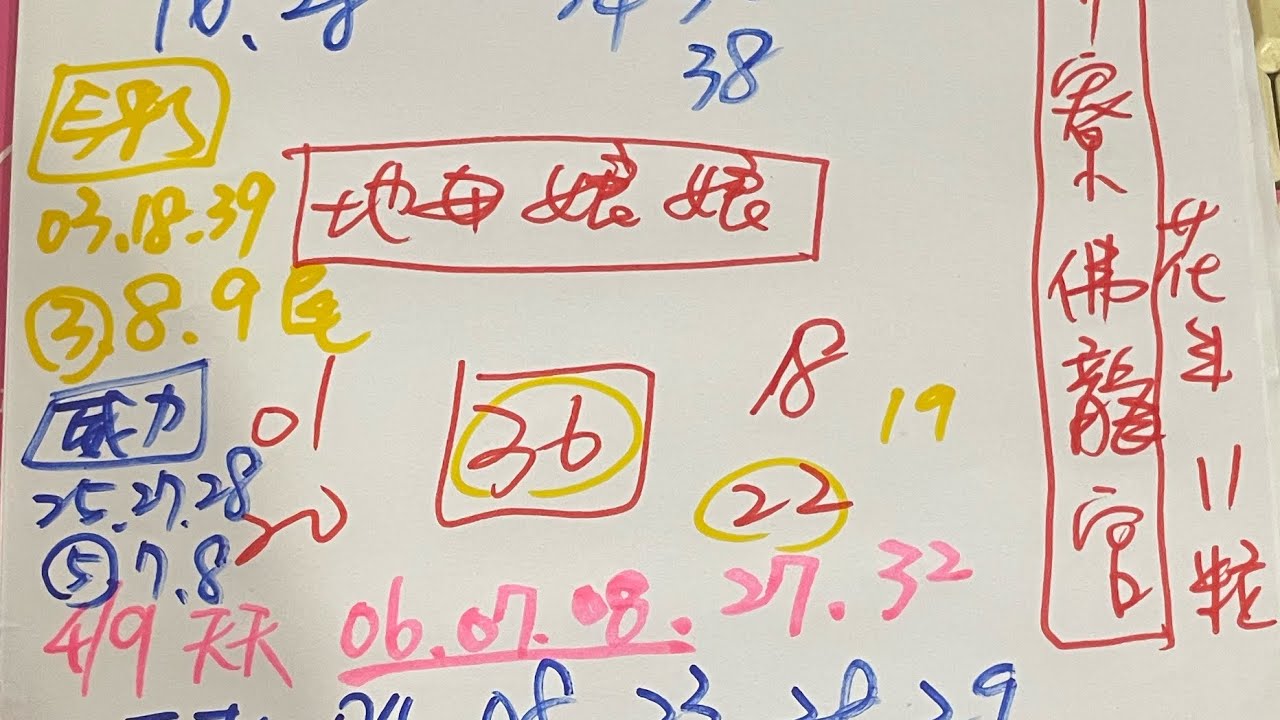 38
03.18.39
地母娘娘
③ 8.9尾
威力
01
36
18
19
25.27.28
20
22
⑤ 7.8
4/9 天天 06.07.08.27.32
08 23 28 29
寮佛龍宮
花生 11粒